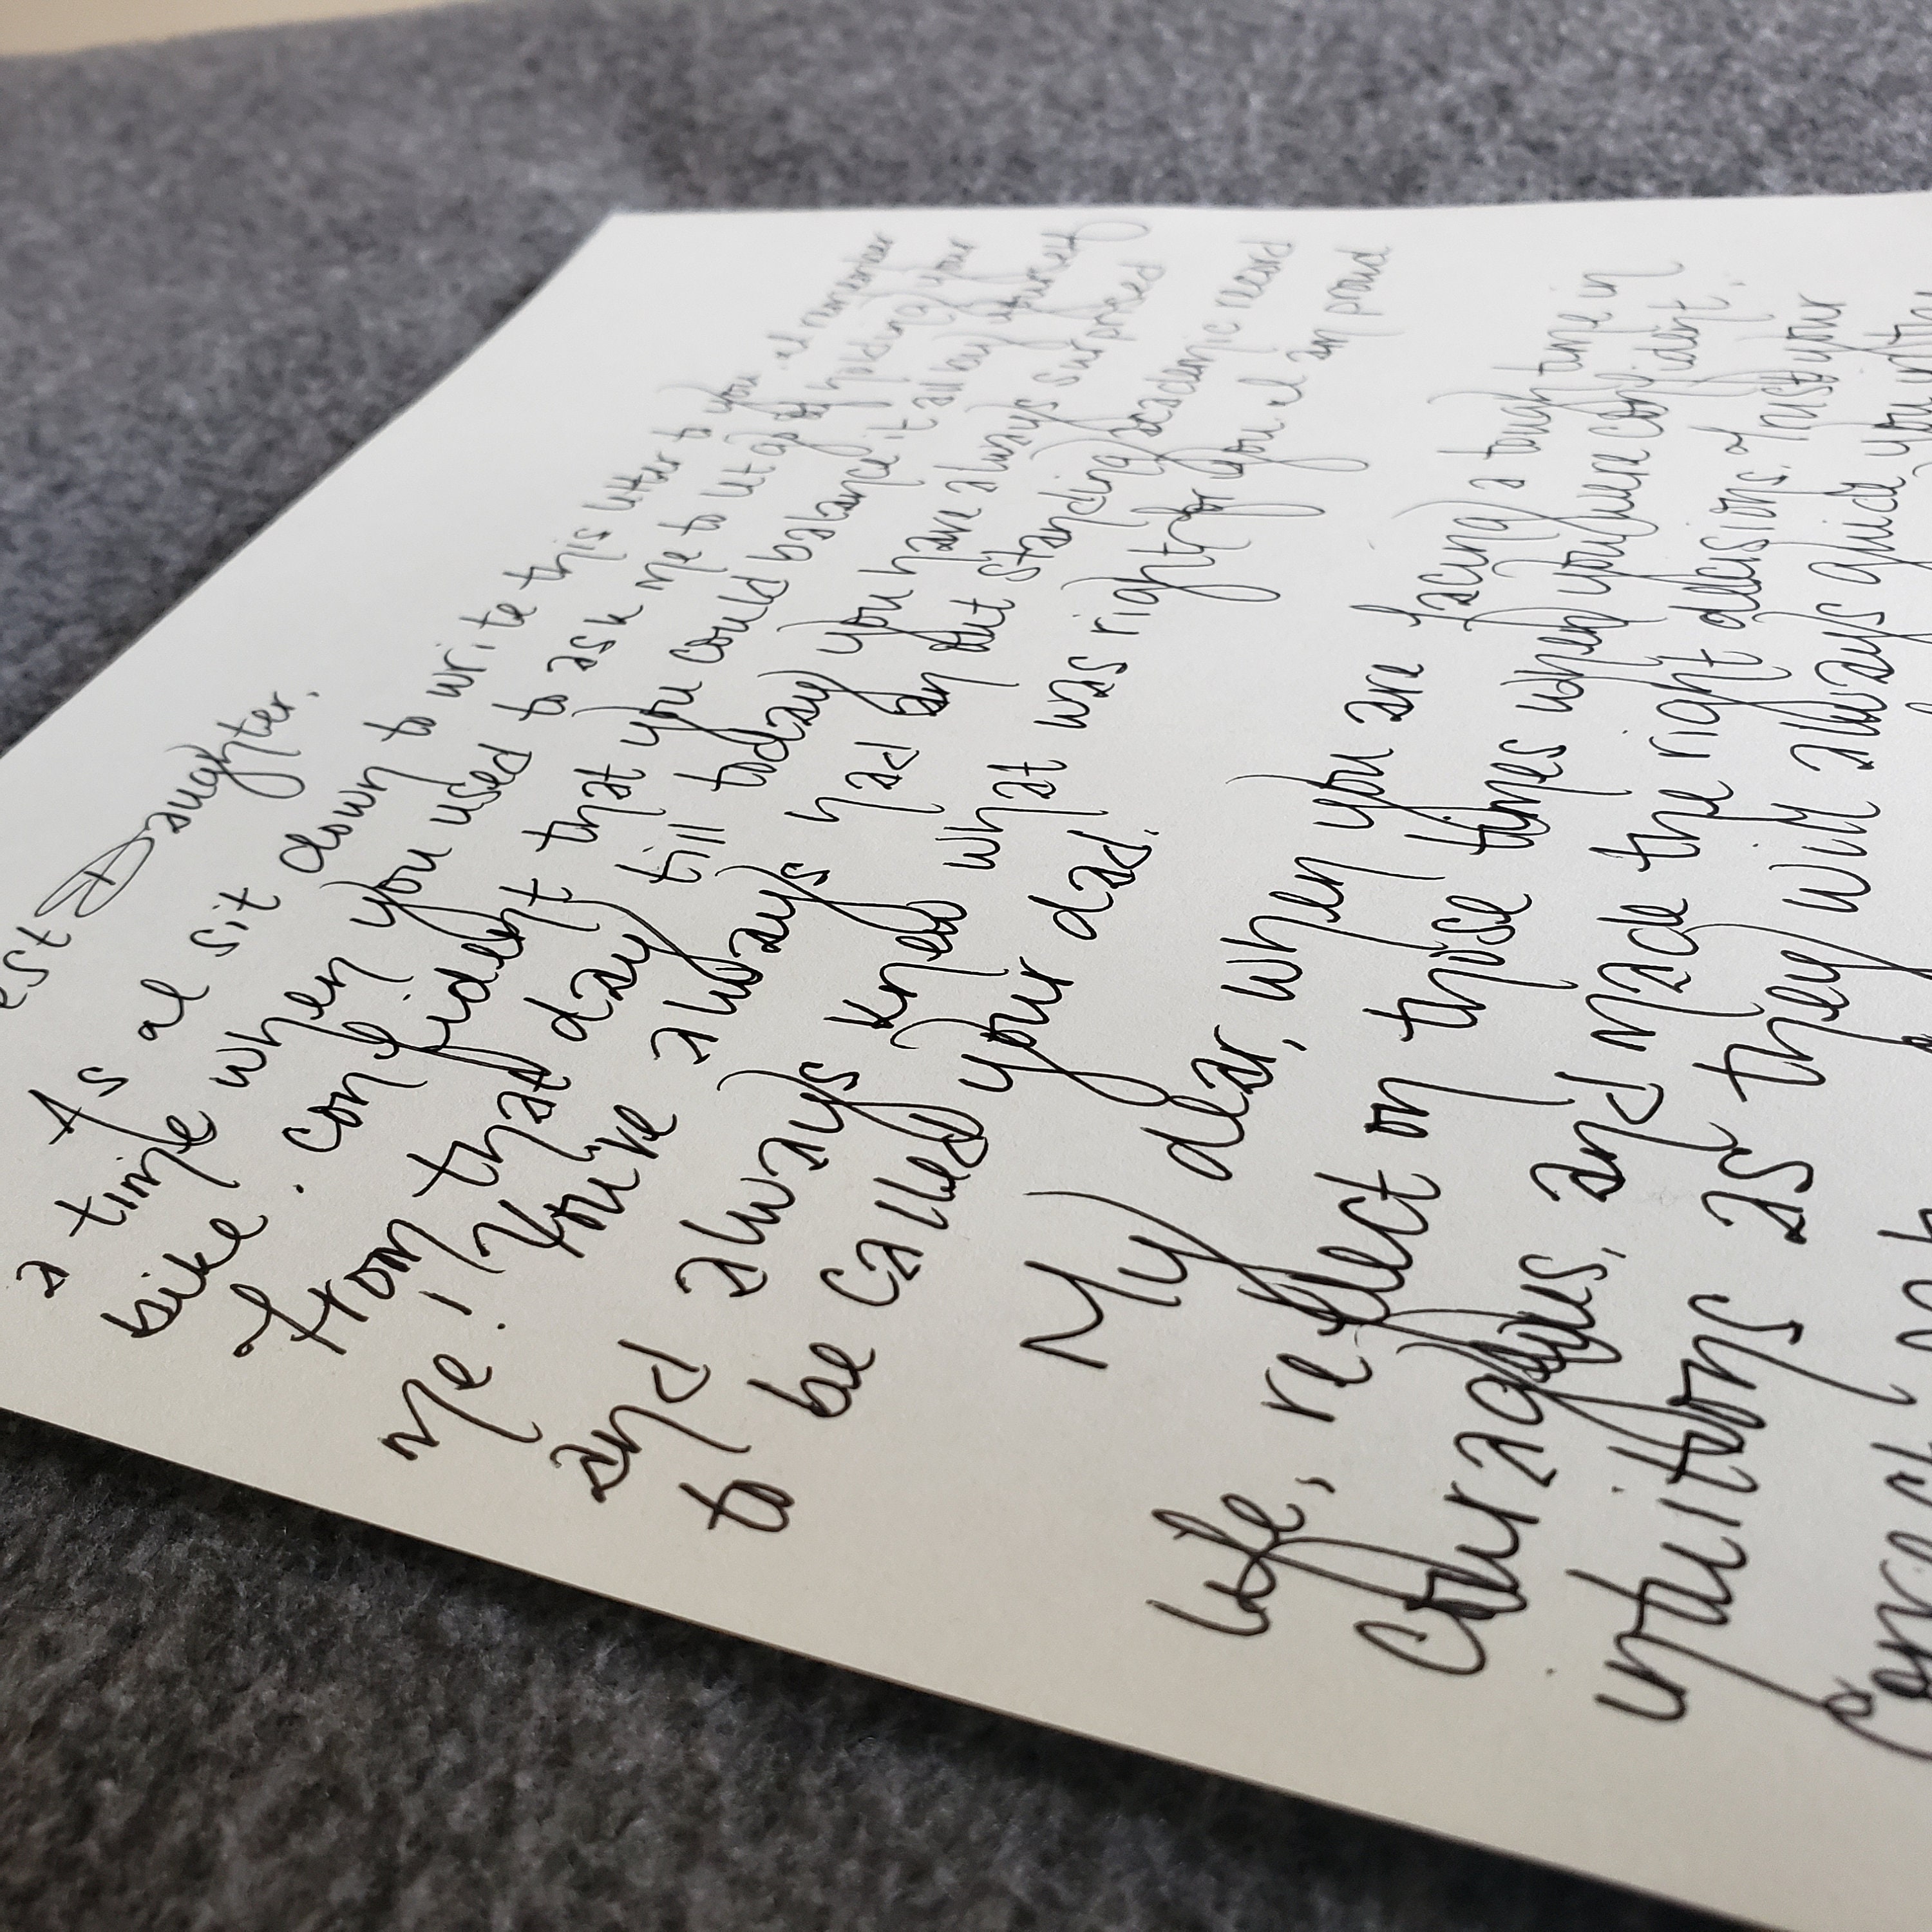 est Daughter,
As I sit down to write this letter to you. I remember
a time when you used to ask me to let go of holding your
bike. confident that you could balance it all by yourself
from that day till today you have always surprised
me! You've always had an outstanding academic record
and always knew what was right for you. I am proud
to be called your dad.
My dear, when you are facing a tough time in
life, reflect on those times when you were confident,
courageous, and made the right decisions. Trust your
intuitions as they will always guide you